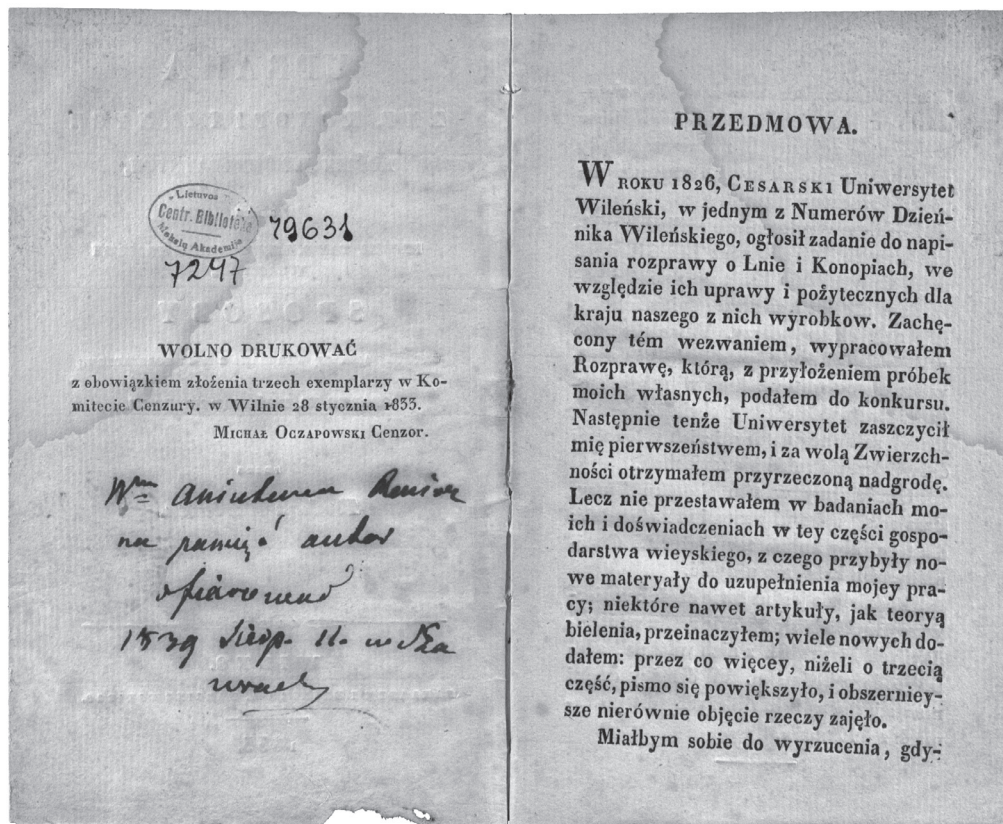 Lietuvos
Centr. Biblioteka
Mokslų Akademija
79631
7247
WOLNO DRUKOWAĆ
z obowiązkiem złożenia trzech exemplarzy w Ko-
mitecie Cenzury. w Wilnie 28 stycznia 1833.
Michał Oczapowski Cenzor.
na pamięć autor
1839 Sierp. 11.
PRZEDMOWA.
W roku 1826, Cesarski Uniwersytet
Wileński, w jednym z Numerów Dzień-
nika Wileńskiego, ogłosił zadanie do napi-
sania rozprawy o Lnie i Konopiach, we
względzie ich uprawy i pożytecznych dla
kraju naszego z nich wyrobkow. Zachę-
cony tém wezwaniem, wypracowałem
Rozprawę, którą, z przyłożeniem próbek
moich własnych, podałem do konkursu.
Następnie tenże Uniwersytet zaszczycił
mię pierwszeństwem, i za wolą Zwierzch-
ności otrzymałem przyrzeczoną nadgrodę.
Lecz nie przestawałem w badaniach mo-
ich i doświadczeniach w tey części gospo-
darstwa wieyskiego, z czego przybyły no-
we materyały do uzupełnienia mojey pra-
cy; niektóre nawet artykuły, jak teoryą
bielenia, przeinaczyłem; wiele nowych do-
dałem: przez co więcey, niżeli o trzecią
część, pismo się powiększyło, i obszerniey-
sze nierównie objęcie rzeczy zajęło.
Miałbym sobie do wyrzucenia, gdy-